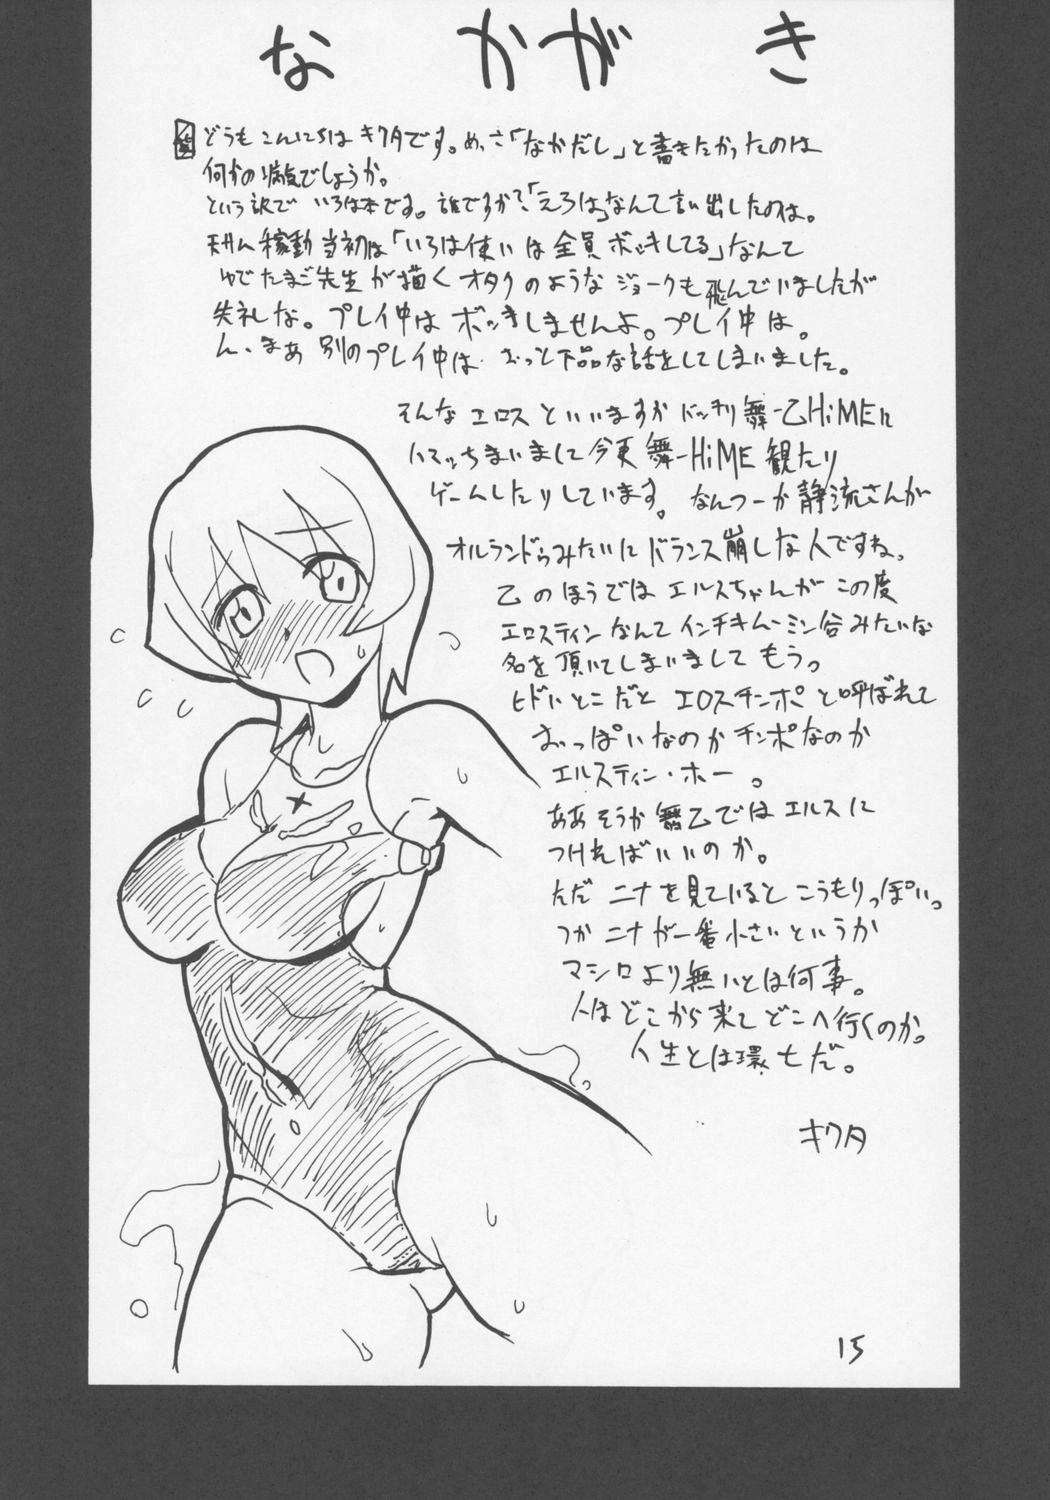 なかがき
どうもこんにちはキクタです。めっさ「なかだし」と書きたかったのは
何かの病気でしょうか。
という訳で いろは本です。誰ですか?「えろは」なんて言い出したのは。
稼動当初は「いろは使いは全員ボッキしてる」なんて
ゆでたまご先生が描くオタクのようなジョークも飛んでいましたが
失礼な。プレイ中はボッキしませんよ。プレイ中は。
ん、まあ 別のプレイ中は おっと下品な話をしてしまいました。
そんなエロスといいますか バッチリ舞-乙HiMEに
ハマっちまいまして今更 舞-HiME 観たり
ゲームしたりしています。なんつーか静流さんが
オルランドゥみたいにバランス崩しな人ですね。
乙のほうではエルスちゃんがこの度
エロスティンなんてインチキムーミン谷みたいな
名を頂いてしまいましてもうっ
ヒドいとこだと エロスチンポと呼ばれて
おっぱいなのかチンポなのか
エルスティン・ホー。
ああそうか舞乙ではエルスに
つければいいのか。
ただ ニナを見ているとこうもりっぽいっ
つかニナが一番小さいというか
マシロより無いとは何事。
人はどこから来てどこへ行くのか。
人生とは環七だ。
キクタ
15